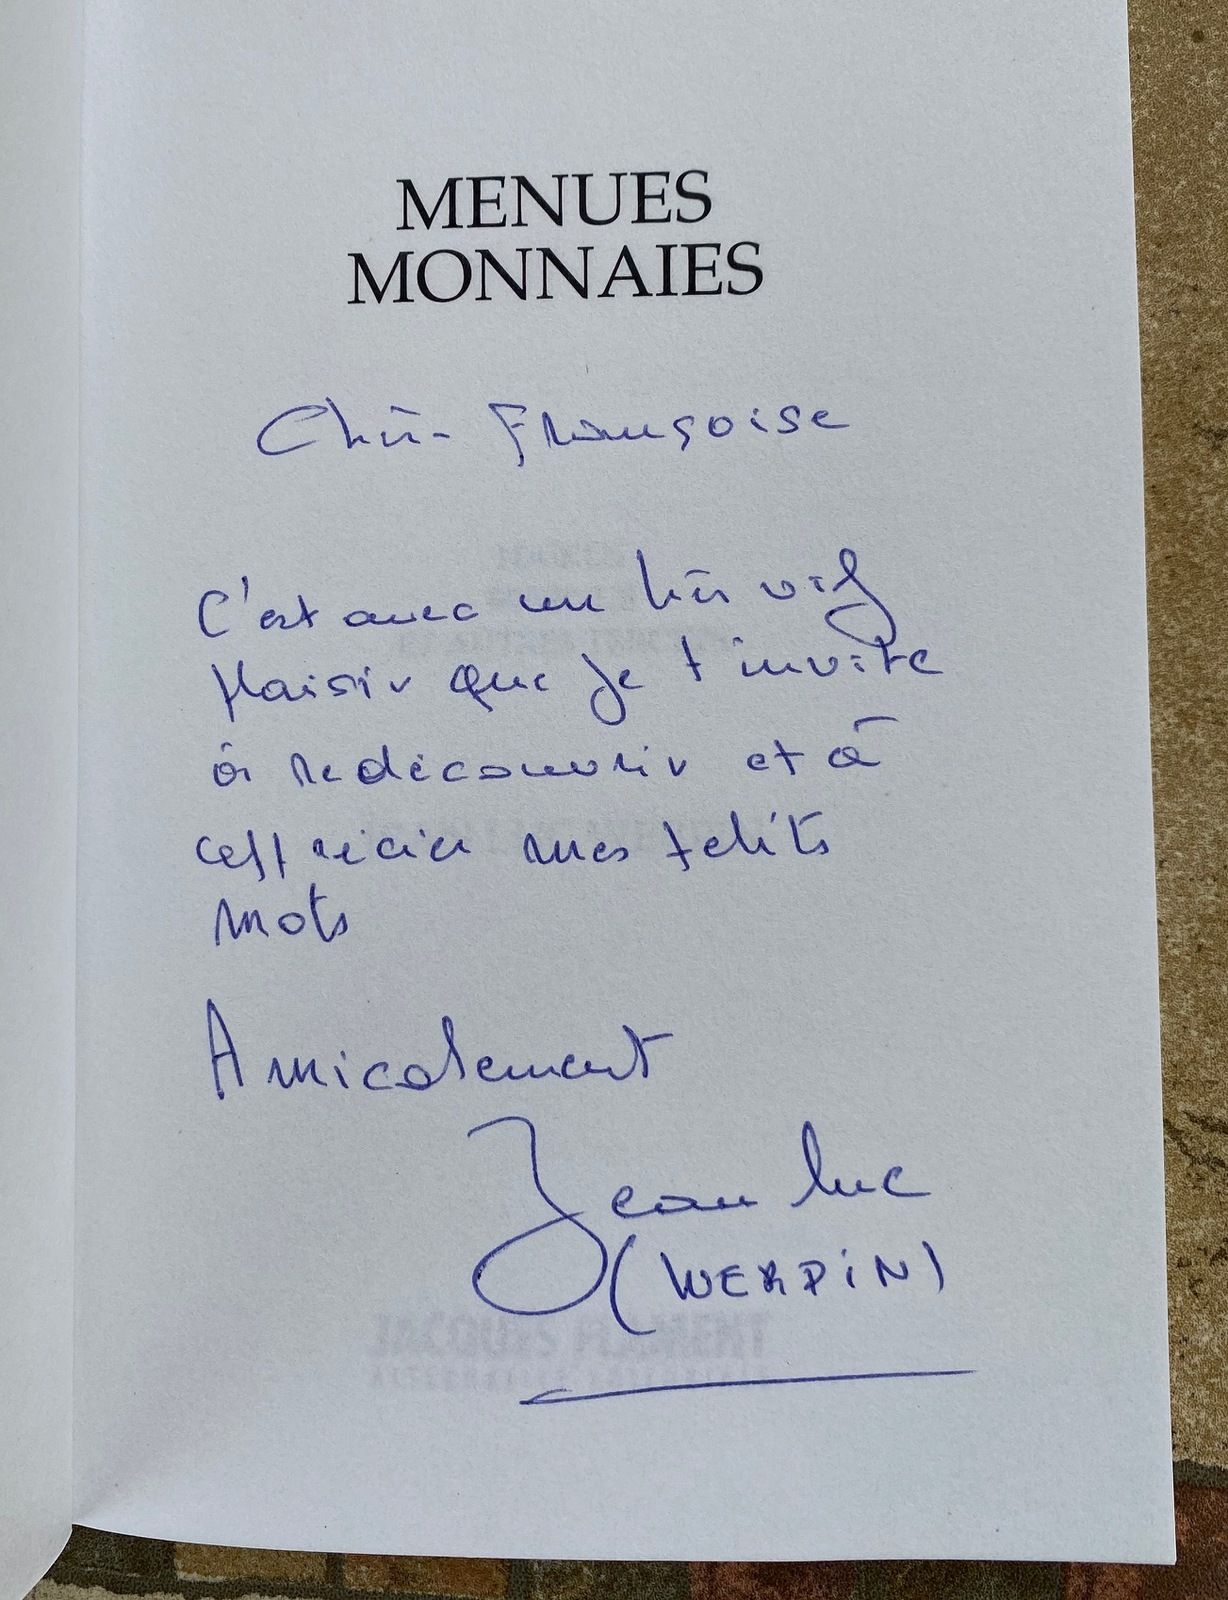 MENUES
MONNAIES
Chère Françoise
C'est avec un très vif
plaisir que je t'invite
à redécouvrir et à
apprécier mes petits
mots
Amicalement
Jean Luc
(WERPIN)
JACQUES FLAMENT